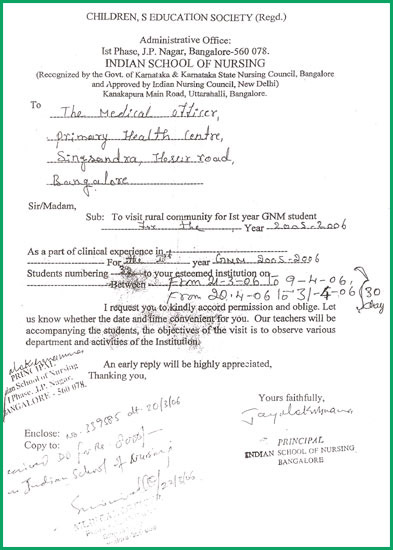 CHILDREN, S EDUCATION SOCIETY (Regd.)
Administrative Office:
Ist Phase, J.P. Nagar, Bangalore-560 078.
INDIAN SCHOOL OF NURSING
(Recognized by the Govt. of Karnataka & Karnataka State Nursing Council, Bangalore
and Approved by Indian Nursing Council, New Delhi)
Kanakapura Main Road, Uttarahalli, Bangalore.
To
The Medical officer,
Primary Health Centre,
Singsandra, Hosur road,
Bangalore
Sir/Madam,
Sub: To visit rural community for Ist year GNM student
For the, Year 2005-2006
As a part of clinical experience in
For the year GNM 2005-2006
Students numbering to your esteemed institution on
Between From 21-3-06 to 9-4-06,
From 20.4-06 to 31-4-06 (30 day)
I request you to kindly accord permission and oblige. Let
us know whether the date and time convenient for you. Our teachers will be
accompanying the students, the objectives of the visit is to observe various
department and activities of the Institution.
An early reply will be highly appreciated,
Thanking you,
PRINCIPAL
School of Nursing
Phase, J.P. Nagar,
BANGALORE - 560 078.
Yours faithfully,
PRINCIPAL
INDIAN SCHOOL OF NURSING
BANGALORE
Enclose: No. 239585 dt 20/3/06
Copy to:
DD for Rs 2000/-
Indian School of Nursing